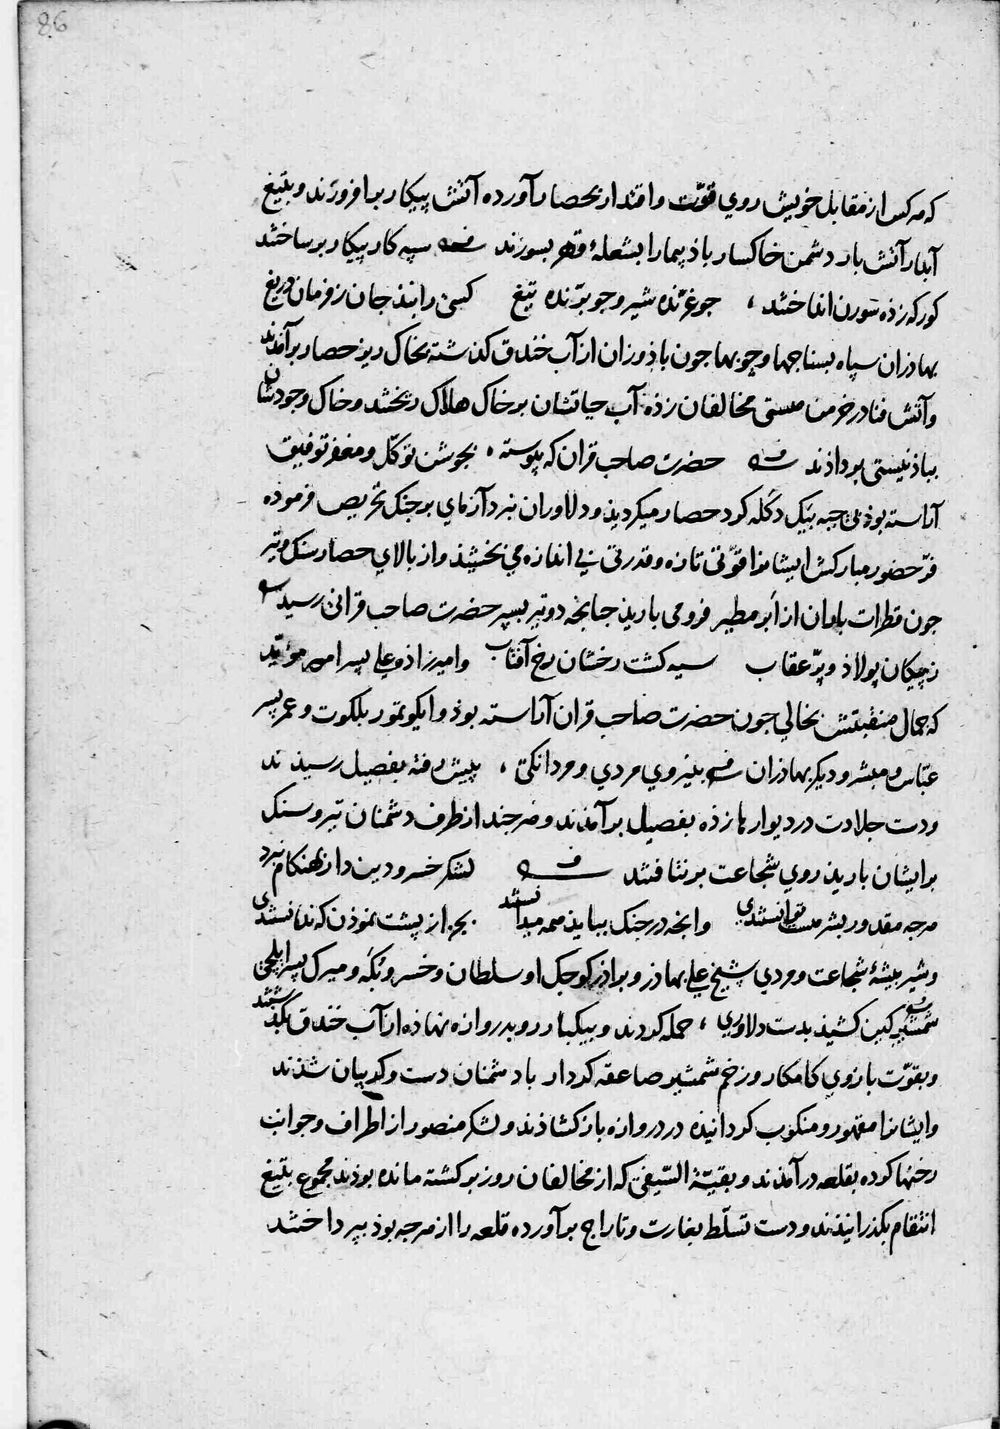 86
که هرکس از مقابل خویش روی قوّت واقتدار بحصار آورده آتش پیکار برافروزند و بتیغ
آبدار آتش بار دشمن خاکسار باذپیما را بشعلهٔ قهر بسوزند سپه کار پیکار برساختند
کورکه زذه سورن انداختند ، جو غرّنده شیر و جو برّنده تیغ کسی را نبذ جان ز فرمان دریغ
بهاذران سپاه بسناجها و چوبها جون باذ وزان از آب خندق کذشته بخاک ریز حصار برآمذند
وآتش فنا در خرمن هستی مخالفان زذه آب حیاتشان بر خاک هلاک ریختند و خاک وجودشان
بباذ نیستی برداذند حضرت صاحب قران که پیوسته ، بجوشن توکّل و مغفر توفیق
آراسته بوذ بی جبه بیک دکله کرد حصار میکردیذ و دلاوران نبرد آزمای بر جنک تحریص فرموذه
فرّ حضور مبارکش ایشانرا قوّتی تازه و قدرتی بی اندازه می بخشیذ و از بالای حصار سنک و تیر
جون قطرات باران از ابر مطیر فرو می باریذ جنانجه دو تیر بسپر حضرت صاحب قرانی رسیذ
ز پیکان پولاذ و پرّ عقاب سیه کشت رخشان رخ آفتاب وامیرزاذه علی پسر امیر مؤید
که جمال منقبتش بخالی جون حضرت صاحب قران آراسته بوذ و ایکو تمور بلکوت و عمر پسر
عبّاس و مبشر و دیکر بهاذران بنیروی مردی و مردانکی ، پیش رفته بفصیل رسیذند
ودست جلادت در دیوارها زذه بفصیل برآمذند و هرجند از طرف دشمنان تیر و سنک
بر ایشان باریذ روی شجاعت برنتافتند لشکر خسرو دین دار بهنکام نبرد
هرجه مقدور بشر هست توانستندی وانجه در جنک ببایذ همه میدانستند بجز از پشت نموذن که ندانستندی
وشیر بیشهٔ شجاعت و مردی شیخ علی بهاذر و براذر کوجک او سلطان و خسرو بکه و میرک پسر ایلجی
شمشیر کین کشیذ بدست دلاوری ، حمله کردند و بیکبار رو بدروازه نهاذه از آب خندق بکذشتند
وبقوّت بازوی کامکار و زخم شمشیر صاعقه کردار با دشمنان دست و کریبان شذند
وایشانرا مقهور و منکوب کردانیذه در دروازه باز کشاذند و لشکر منصور از اطراف و جوانب
رخنها کرده بقلعه درآمذند و بقیّة السّیفی که از مخالفان روز برکشته مانده بوذند مجموع بتیغ
انتقام بکذرانیذند و دست تسلّط بغارت و تاراج برآورده قلعه را از هرجه بوذ بپرداختند